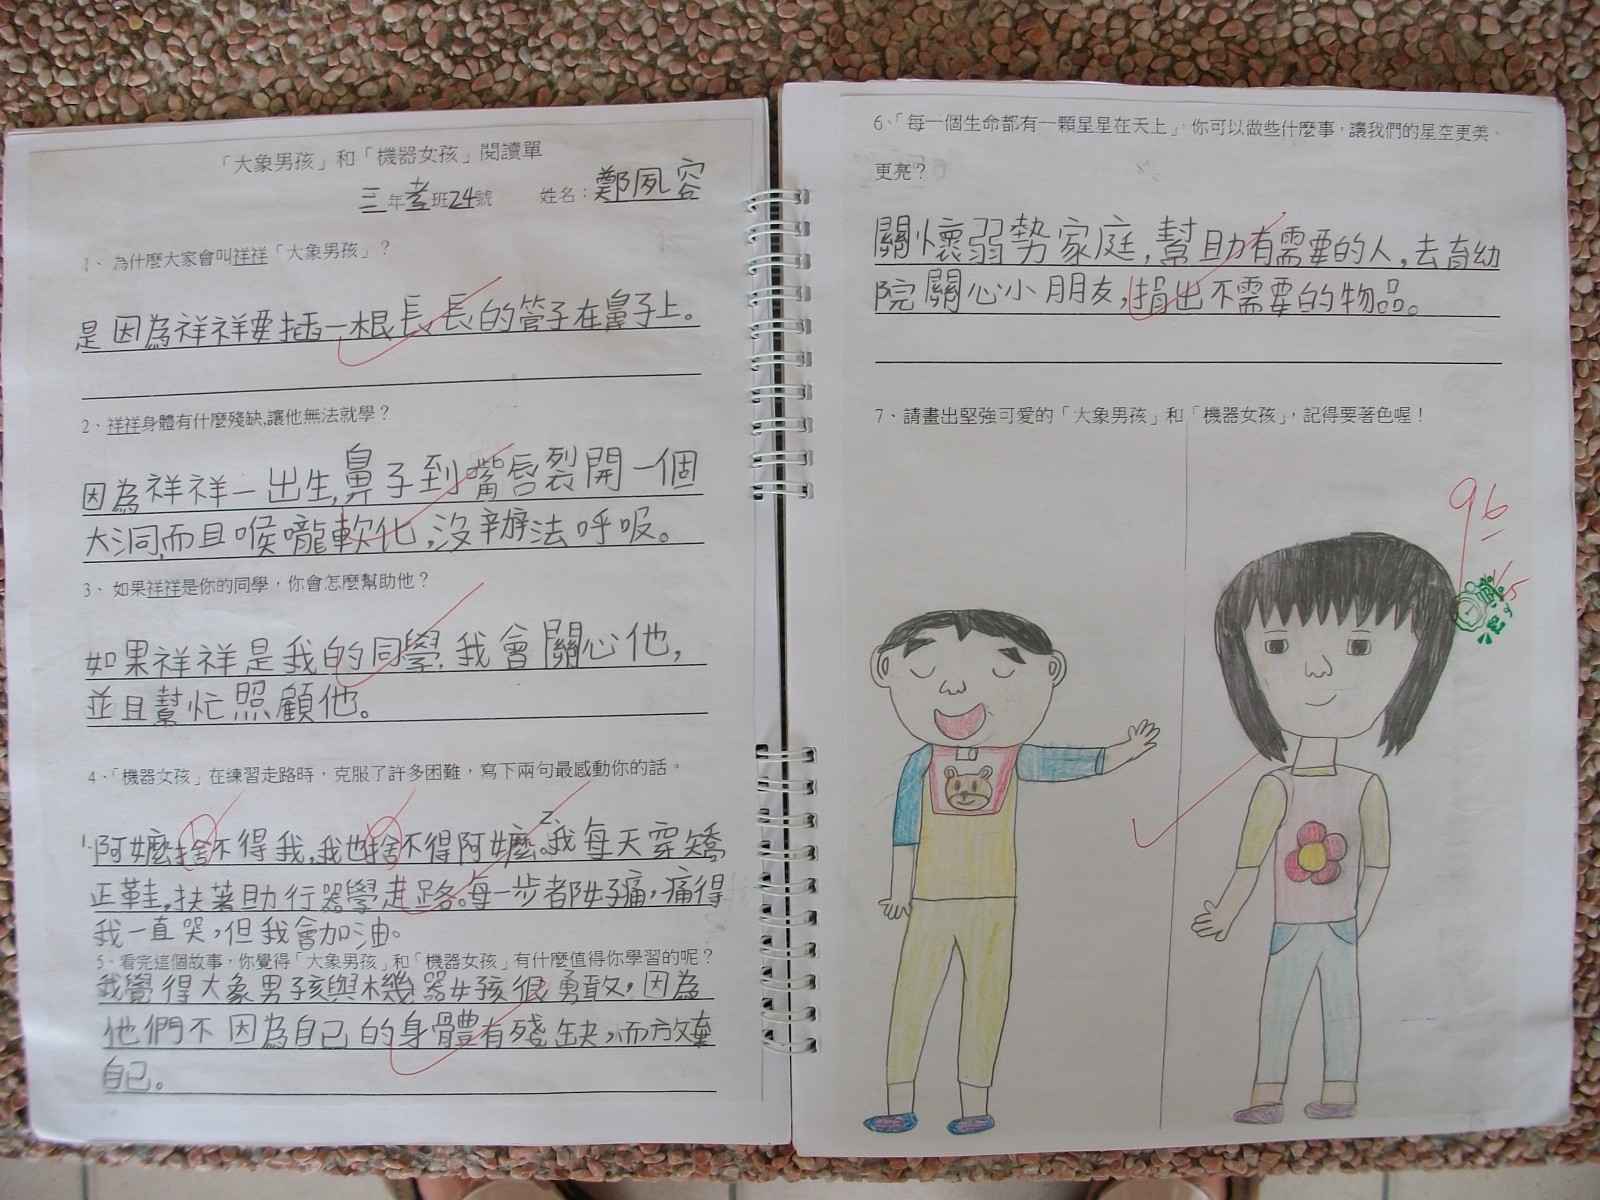 「大象男孩」和「機器女孩」閱讀單
三年孝班24號 姓名：鄭夙容
1、為什麼大家會叫祥祥「大象男孩」？
是因為祥祥要插一根長長的管子在鼻子上。
2、祥祥身體有什麼殘缺,讓他無法就學？
因為祥祥一出生,鼻子到嘴唇裂開一個
大洞,而且喉嚨軟化,沒辦法呼吸。
3、如果祥祥是你的同學，你會怎麼幫助他？
如果祥祥是我的同學,我會關心他,
並且幫忙照顧他。
4、「機器女孩」在練習走路時，克服了許多困難，寫下兩句最感動你的話。
1.阿嬤捨不得我,我也捨不得阿嬤。2、我每天穿矯
正鞋,扶著助行器學走路。每一步都好痛,痛得
我一直哭,但我會加油。
5、看完這個故事，你覺得「大象男孩」和「機器女孩」有什麼值得你學習的呢？
我覺得大象男孩與機器女孩很勇敢,因為
他們不因為自己的身體有殘缺,而放棄
自己。
6、「每一個生命都有一顆星星在天上」，你可以做些什麼事，讓我們的星空更美、
更亮？
關懷弱勢家庭,幫助有需要的人,去育幼
院關心小朋友,捐出不需要的物品。
7、請畫出堅強可愛的「大象男孩」和「機器女孩」，記得要著色喔！
96